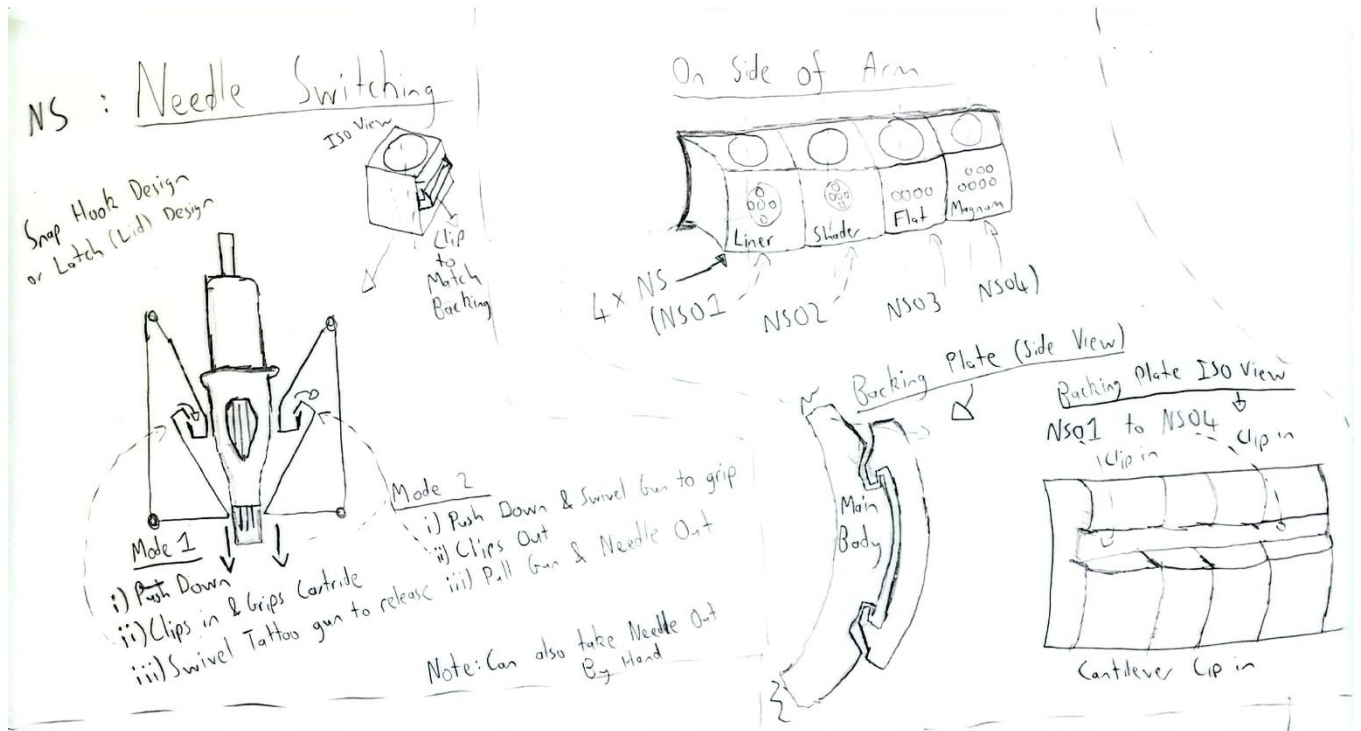 NS : Needle Switching
Snap Hook Design
or Latch (Lid) Design
ISO View
Clip
to
Match
Backing
Mode 1
i) Push Down
ii) Clips in & Grips Cartride
iii) Swivel Tattoo gun to release
Mode 2
i) Push Down & Swivel Gun to grip
ii) Clips Out
iii) Pull Gun & Needle Out
Note: Can also take Needle Out
By Hand
On Side of Arm
Liner
Shader
Flat
Magnum
4 x NS
(NS01
NS02
NS03
NS04)
Backing Plate (Side View)
Main
Body
Backing Plate ISO View
NS01 to NS04
Clip in
Clip in
Cantilever Cip in